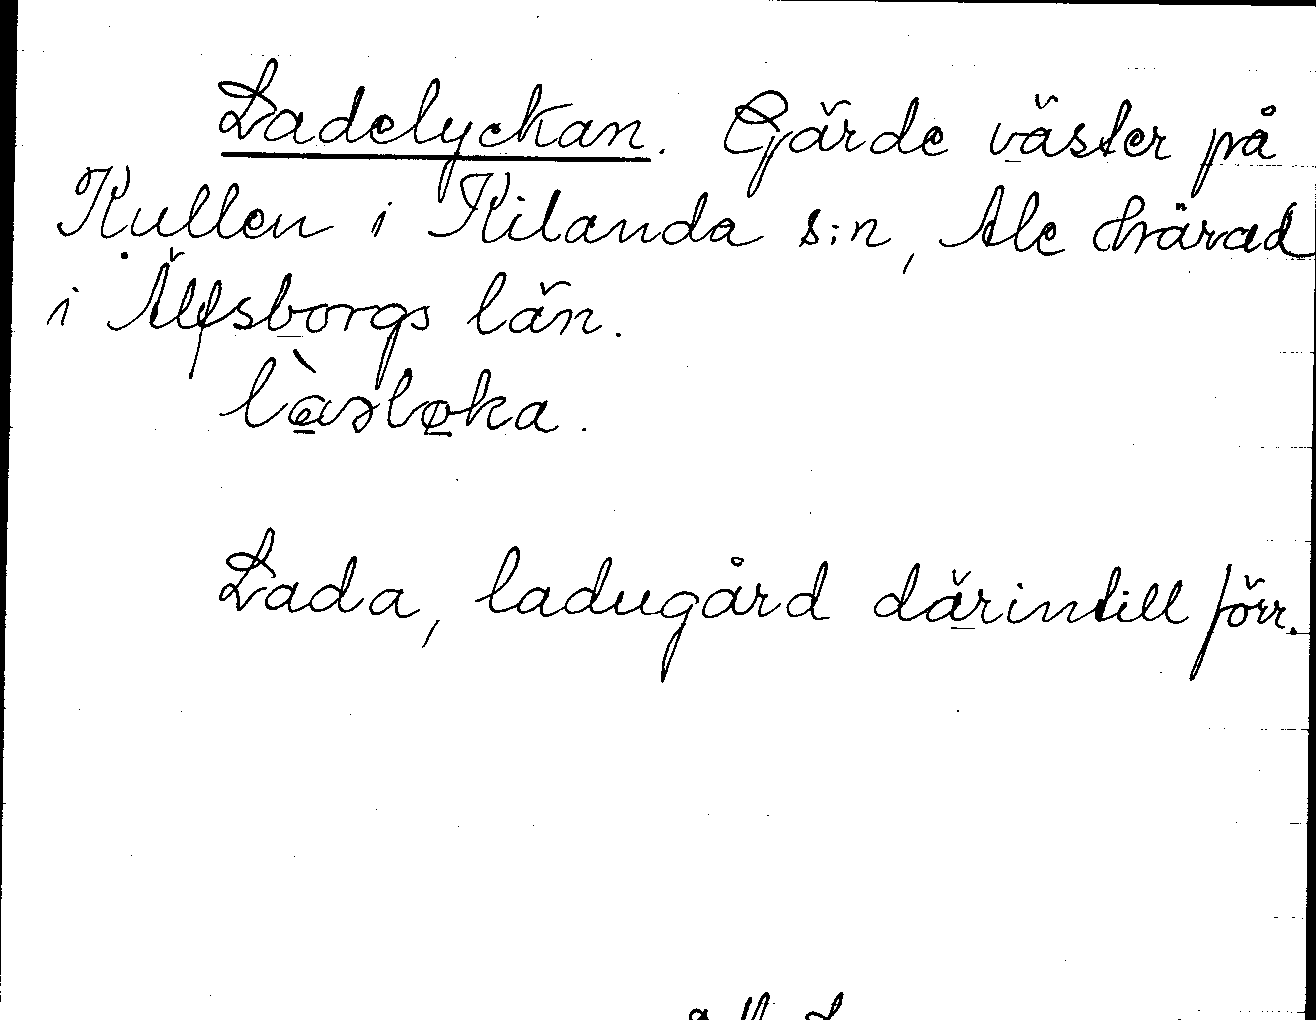 Ladelyckan. Gärde väster på
Kullen i Kilanda s:n, Ale härad
i Älfsborgs län.
Lada, ladugård därintill förr.